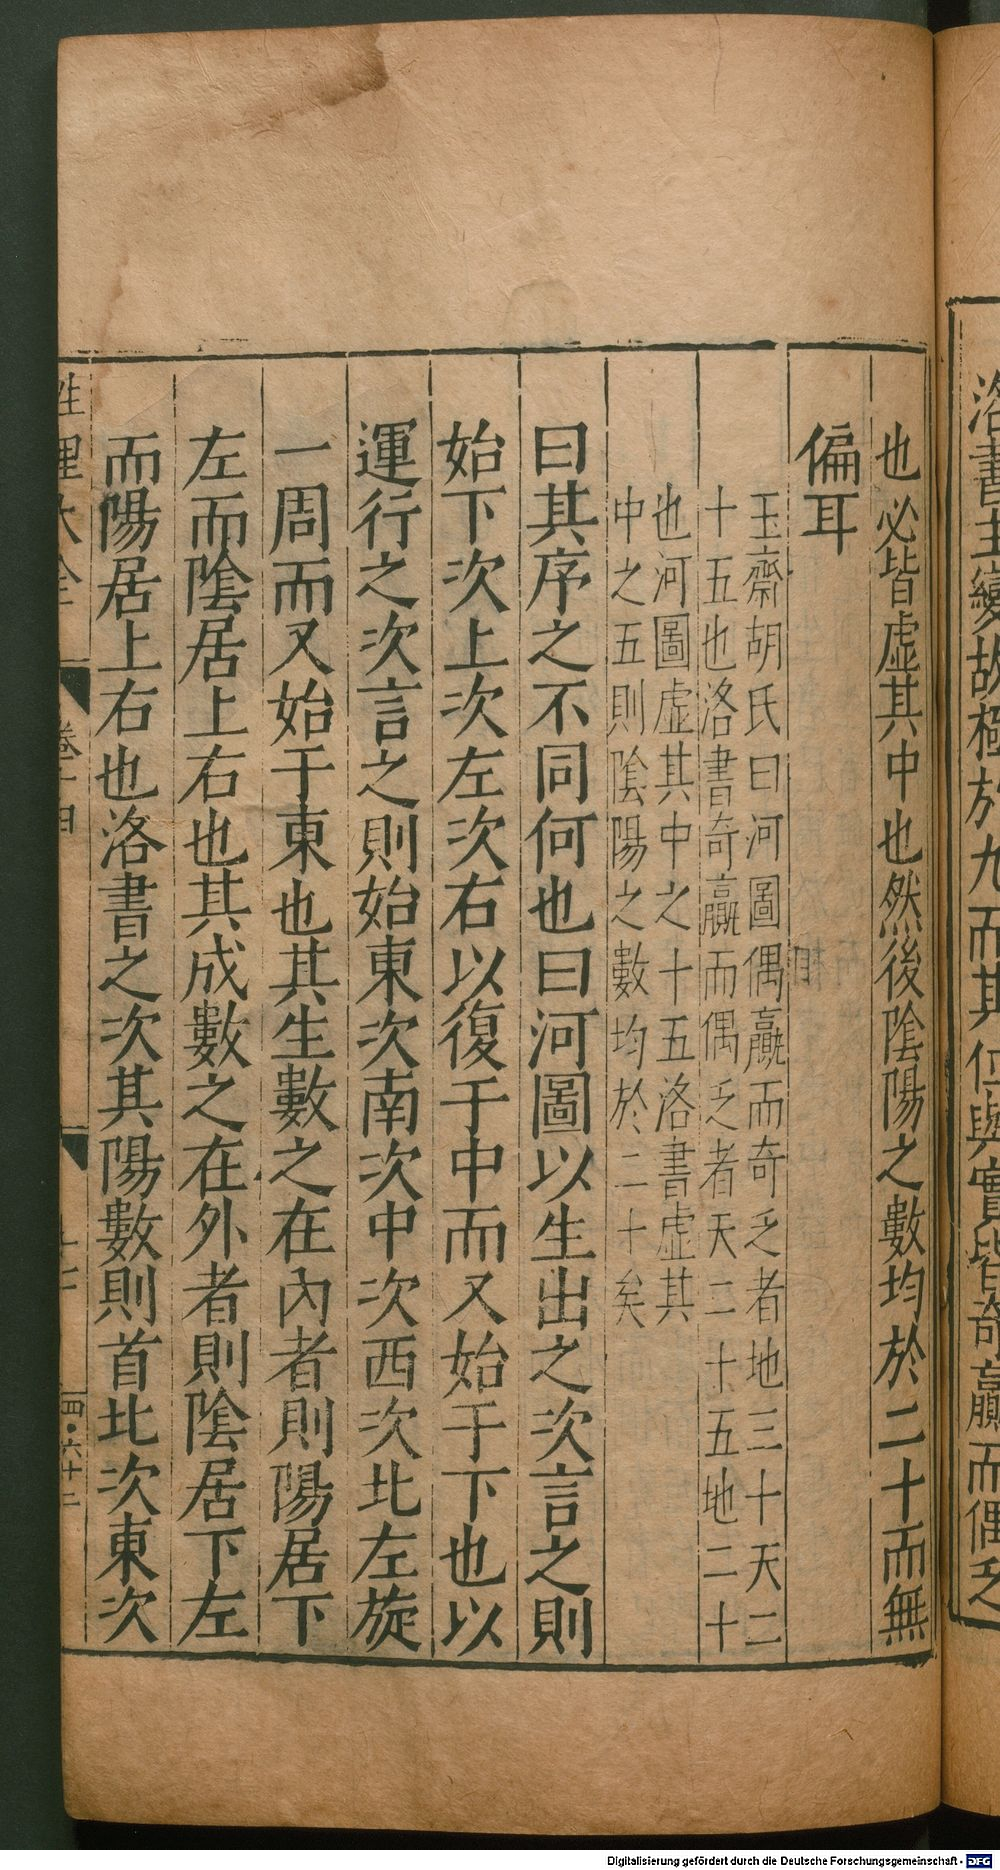 洛書主變故極於九而其位與實皆奇贏而偶乏
也必皆虛其中也然後陰陽之數均於二十而無
偏耳
玉齋胡氏曰河圖偶贏而奇乏者地三十天二
十五也洛書奇贏而偶乏者天二十五地二十
也河圖虛其中之十五洛書虛其
中之五則陰陽之數均於二十矣
曰其序之不同何也曰河圖以生出之次言之則
始下次上次左次右以復于中而又始于下也以
運行之次言之則始東次南次中次西次北左旋
一周而又始于東也其生數之在內者則陽居下
左而陰居上右也其成數之在外者則陰居下左
而陽居上右也洛書之次其陽數則首北次東次
性理大全
卷十四
四·六十二
Digitalisierung gefördert durch die Deutsche Forschungsgemeinschaft - DFG